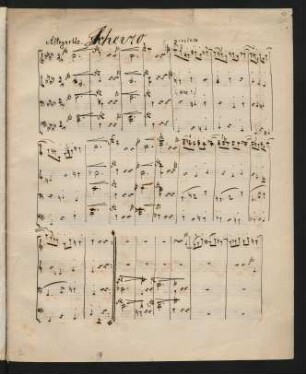 Allegretto. Scherzo.